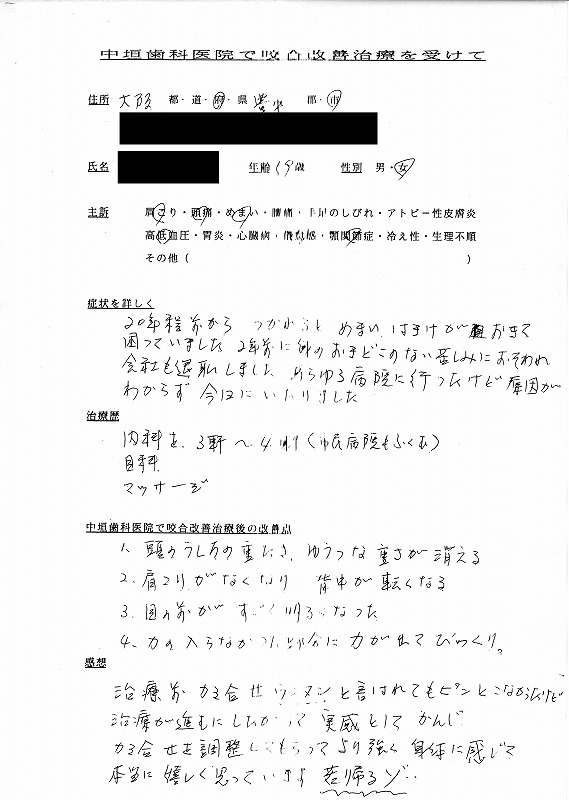 中垣歯科医院で咬合改善治療を受けて
住所 大阪 都・道・府・県 郡・市
氏名 年齢 歳 性別 男・女
主訴 肩こり・頭痛・めまい・腰痛・手足のしびれ・アトピー性皮膚炎
高低血圧・胃炎・心臓病・倦怠感・顎関節症・冷え性・生理不順
その他( )
症状を詳しく
20年程前から つかれると めまい、はきけが おきて
困っていました 2年前に 何のおきどころのない苦しみにおそわれ
会社も退職しました あらゆる病院に行ったけど 原因が
わからず 今日にいたりました
治療歴
内科を、3軒〜4軒(市民病院もふくむ)
耳鼻科
マッサージ
中垣歯科医院で咬合改善治療後の改善点
1、頭のうしろの重たさ、ゆううつな重さが消える
2、肩こりがなくなり 背中が軽くなる
3、目の前が すごく明るくなった
4、力の入らなかった部分に 力が出て びっくり。
感想
治療前 かみ合せウンヌンと言われてもピンとこなかったけど
治療が進むにしたがって 実感として かんじ
かみ合せを調整してもらって より強く 身体に感じて
本当に嬉しく思っています 若帰るゾ…